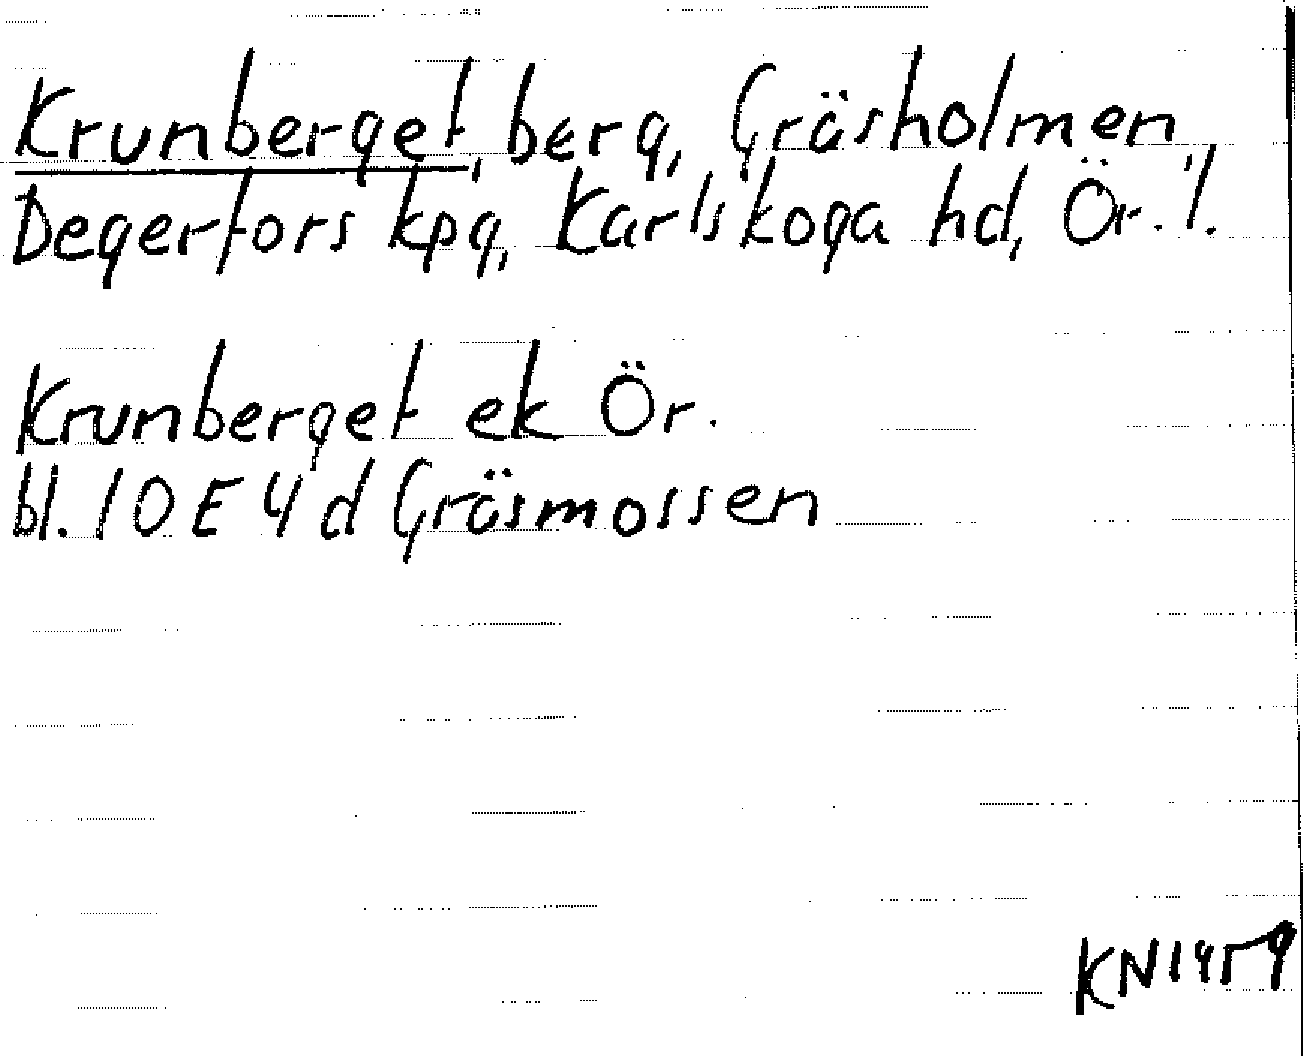 Krunberget, berg, Gräsholmen,
Degerfors kpg, Karlskoga hd, Ör. l.
Krunberget ek Ör.
bl. 10 E 4 d Gräsmossen
KN 1959